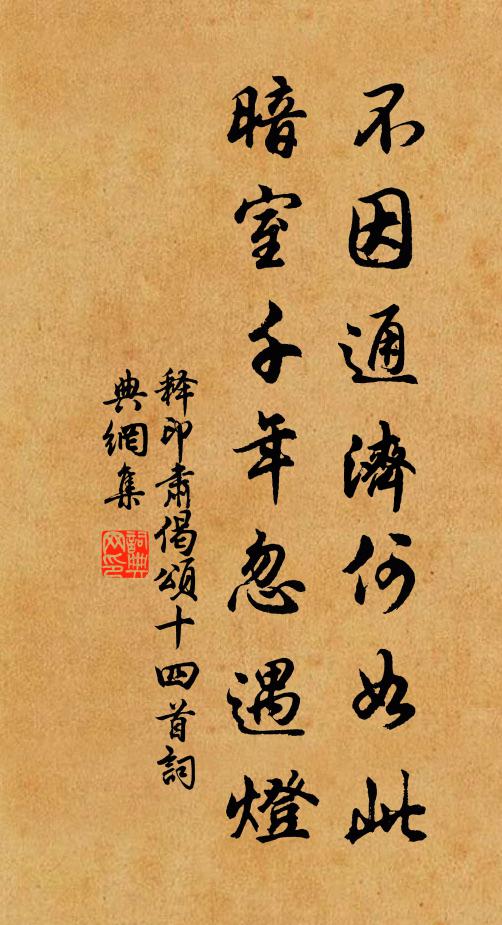 不因通濟何如此
暗室千年忽遇燈
釋印肅偈頌十四首詞
典網集
詞典
网印